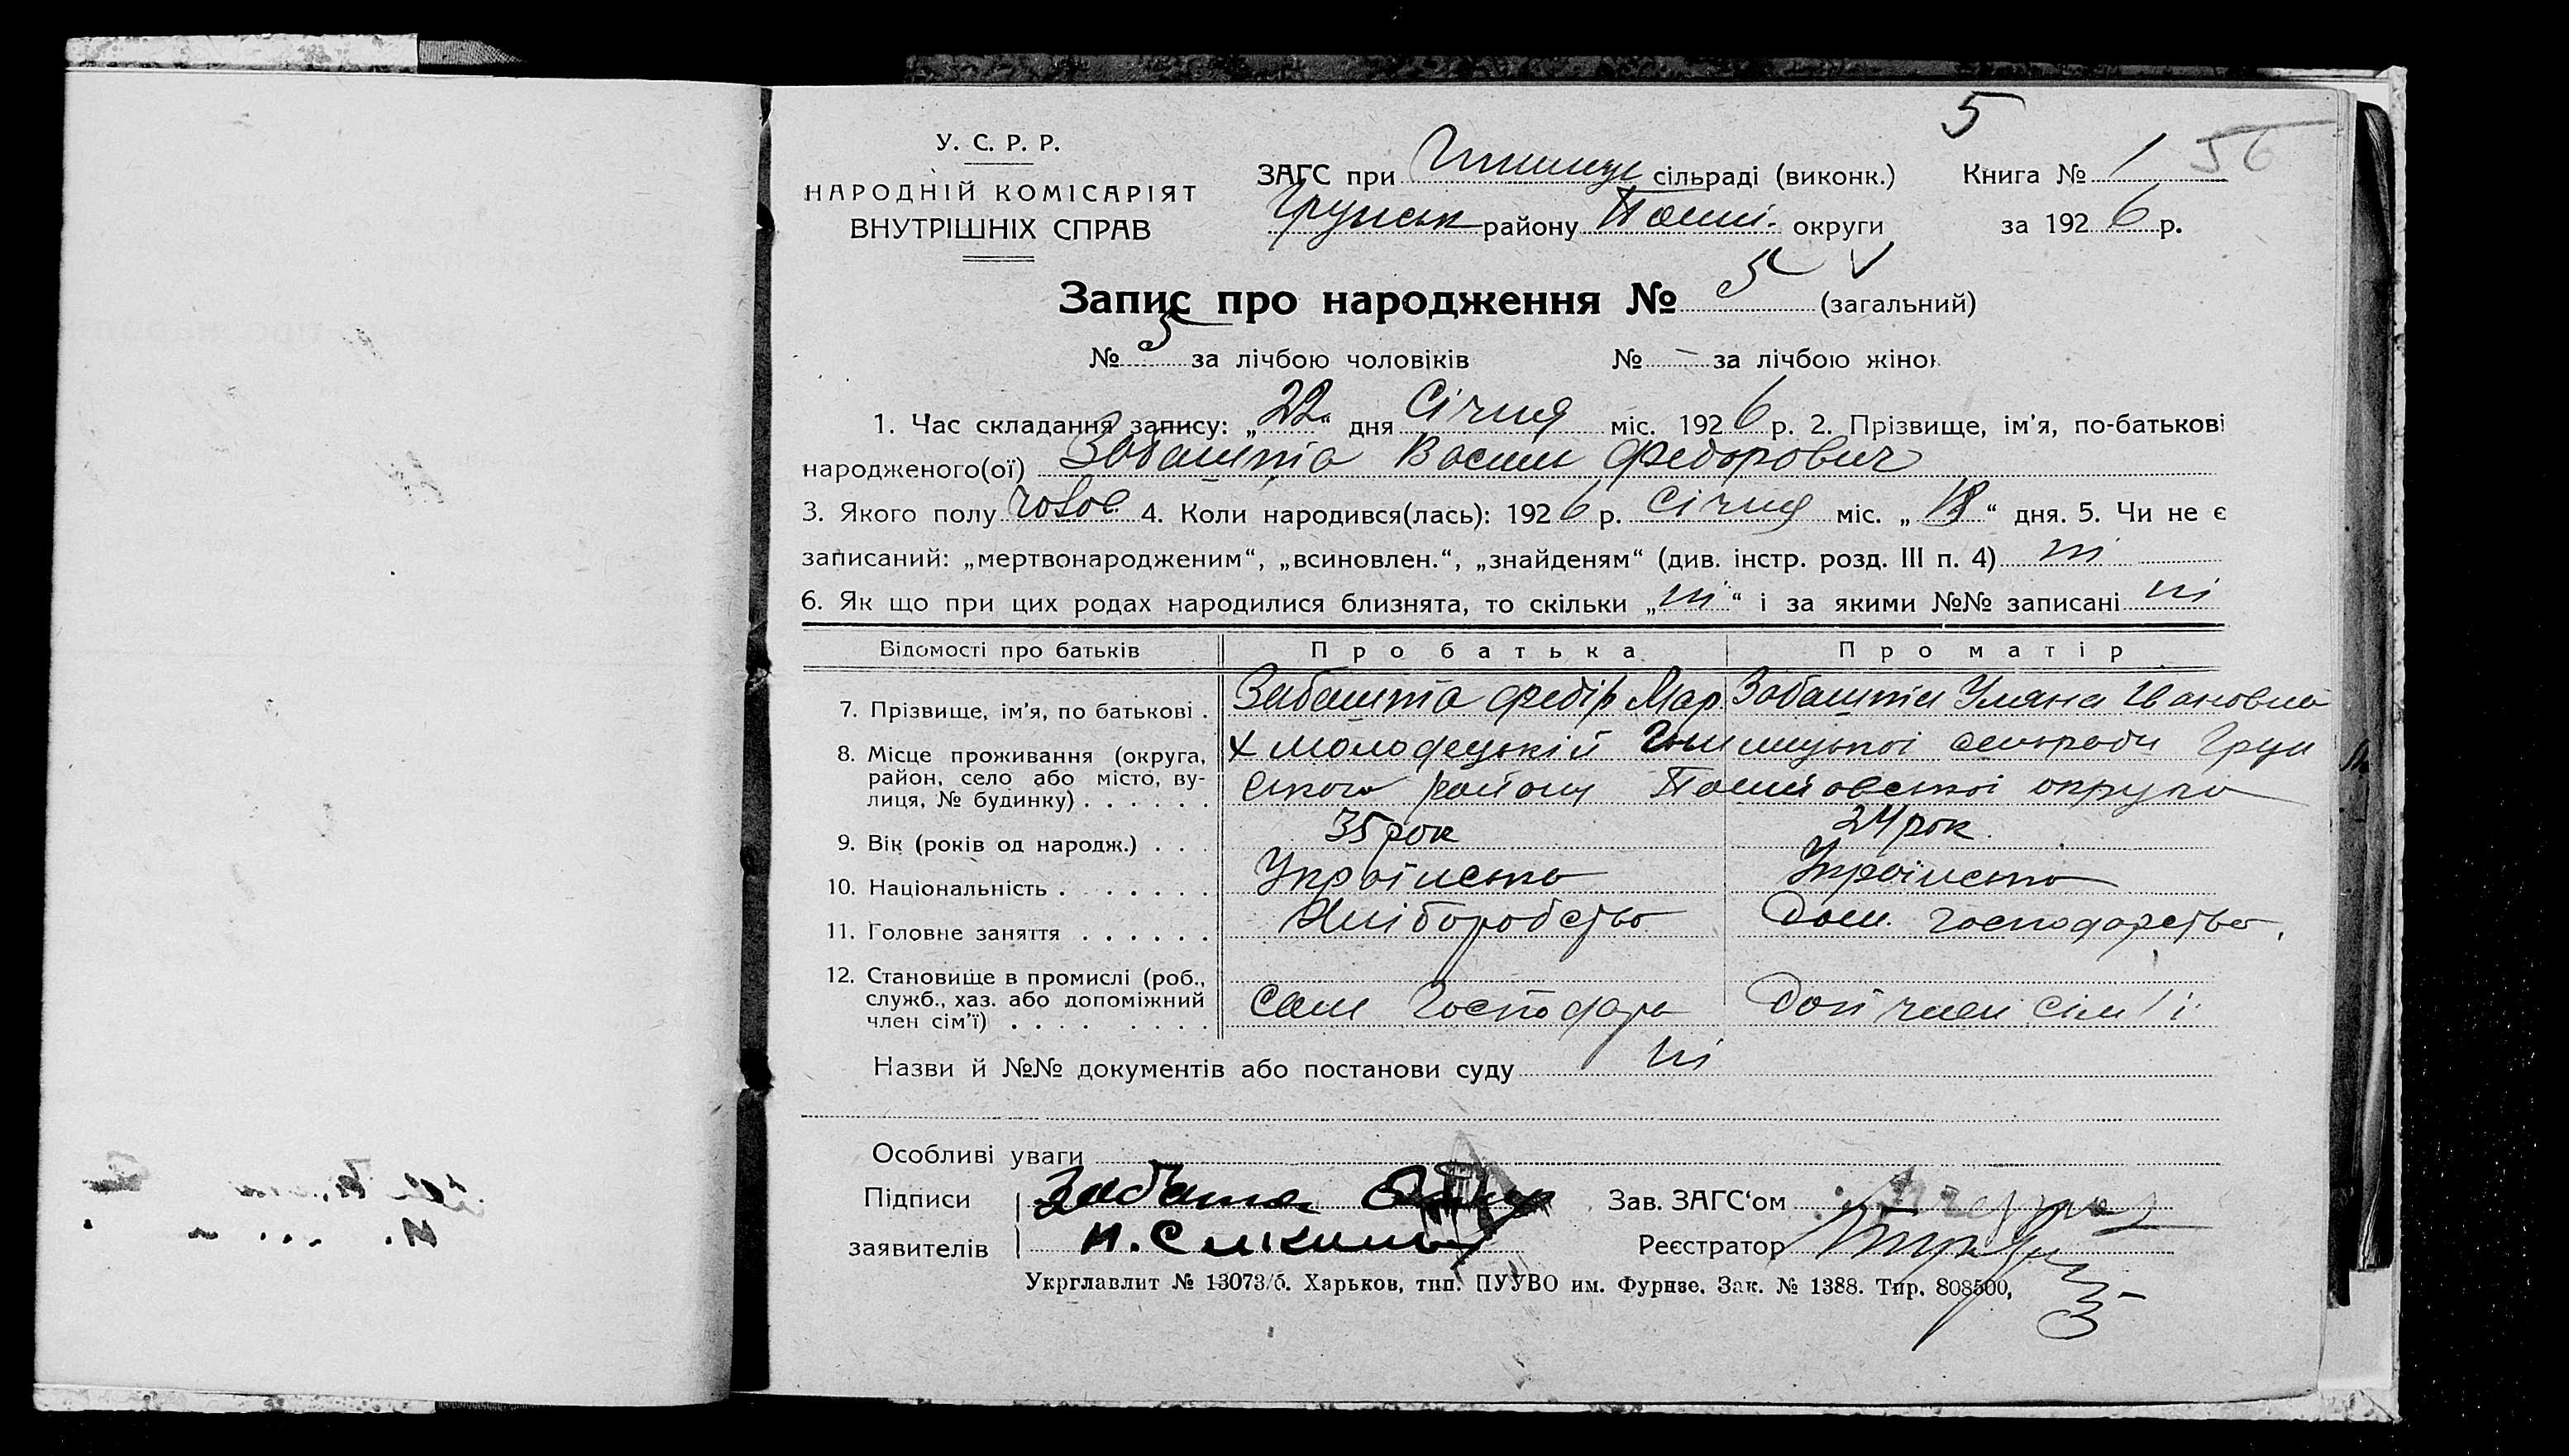 5
У. С. Р. Р.
НАРОДНІЙ КОМІСАРІЯТ
ВНУТРІШНІХ СПРАВ
ЗАГС при сільраді (виконк.) Книга № 1 56
Грунськ району округи за 1926 р.
Запис про народження № 5 (загальний)
№ 5 за лічбою чоловіків № – за лічбою жінок
1. Час складання запису: „22“ дня Січня міс. 1926 р. 2. Прізвище, ім’я, по-батькові
народженого(ої) Забашта Васили Федорович
3. Якого полу чолов 4. Коли народився(лась): 1926 р. Січня міс. „ “ дня. 5. Чи не є
записаний: „мертвонародженим“, „всиновлен.“, „знайденям“ (див. інстр. розд. III п. 4) ні
6. Як що при цих родах народилися близнята, то скільки „ні“ і за якими №№ записані ні
Відомості про батьків Про батька Про матір
7. Прізвище, ім’я, по батькові . Забашта Федір Мар Забашта Уляна Івановна
8. Місце проживання (округа, х Молодецькій сельради Грун
район, село або місто, ву- ського району округи
лиця, № будинку) . . . . . .
9. Вік (років од народж.) . . . 35 рок 24 рок.
10. Національність . . . . . . . Українська Українська
11. Головне заняття . . . . . . Хліборобство Дом. господарство,
12. Становище в промислі (роб.,
служб., хаз. або допоміжний Сам Господарь Доп член сім'ї
член сім’ї) . . . . . . . .
Назви й №№ документів або постанови суду ні
Особливі уваги
Підписи Забашта Зав. ЗАГС‘ом
заявителів Реєстратор
Укрглавлит № 13073/б. Харьков, тип. ПУУВО им. Фурнзе. Зак. № 1388. Тир. 808500,